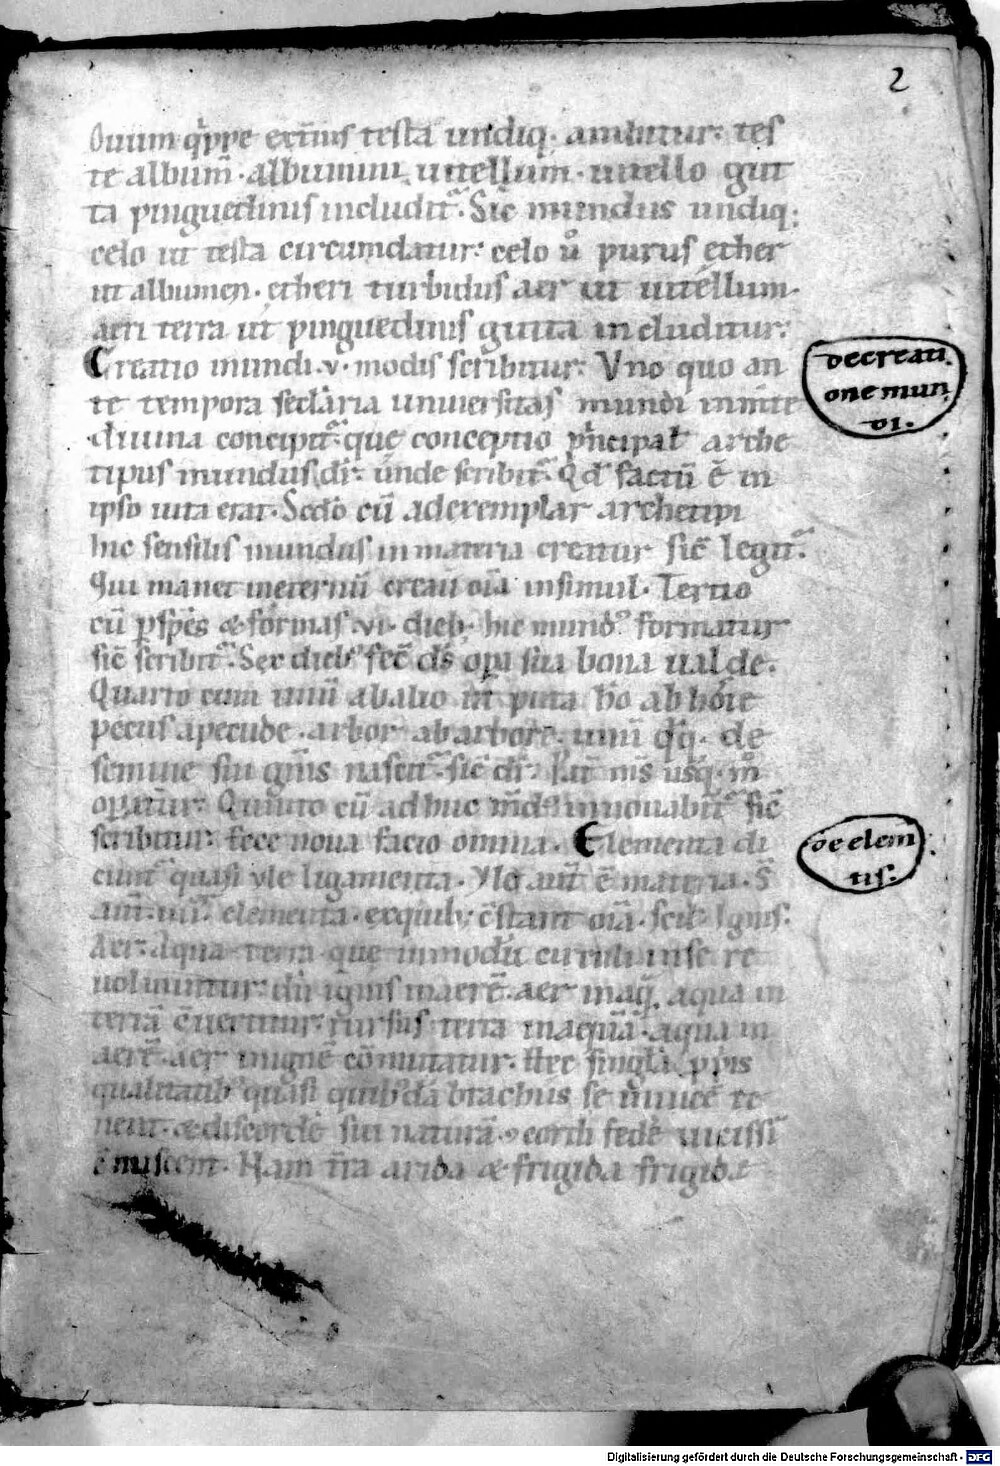 2
Ouum q̇ppe exti᷒us testa undiq;. ambitur: tes
te album̄. albumini uitellum. uitello gut
ta pinguedinis includit᷑. Sic̄ mundus undiq;
celo ut testa circumdatur: celo u̾ purus ether
ut albumen. etheri turbidus aer ut uitellum.
aeri terra ut pinguedinis gutta includitur:
Creatio mundi .v. modis scribitur: Vno quo an
te tempora sec̄laria uniuersitas mundi in mte
diuina concipit᷑. que conceptio p̄ncipał arche
tipus mundus dr̄: unde scribit᷑. Qd̄ factū ē in
ipso uita erat. Scd̄o cū ad exemplar archetipi
hic sensilis mundus in materia creatur sic̄ legit᷑.
Qui manet in eternū creau̅ om̄a insimul. Tertio
cū p sp̄es & formas .vi. dieb; hic mund᷒ formatur
sic̄ scribit᷑. Sex dieb᷒ fec̄ ds̄ opa sua bona ualde.
Quarto cum unū ab alio ut̄ puta hō ab hōīe
pecus a pecude. arbor ab arbore. unū qd̄q;. de
semine sui gn̄is nascit᷑. sic̄ dr̄. Pat̄ m̄s usq;. m̊
opatur: Quinto cū adhuc md᷒ innouabit᷑ sic̄
scribitur: Ecce noua facio omnia. Elementa di
cunt᷑ quasi yle ligamenta. Yle aut̄ ē materia. S̄
aut̄ .iiii. elementa. ex quib; c̄stant om̄a. scil Ignis.
Aer. Aqua terra que in modū circuli in se re
uoluuntur: dū ignis in aerē. aer in aq̄. aqua in
terrā c̄uertitur. rursus terra in aquā. aqua in
aerē. aer in ignē cōmutatur. Hec singla pp̄is
qualitatib᷒ quasi quib᷒dā brachiis se inuicē te
nent. & discordē sui naturā c̄cordi federe uicissī
c̄miscent. Nam t̄ra arida & frigida frigide
De creati
one mun
di.
De elem
tis.
Digitalisierung gefördert durch die Deutsche Forschungsgemeinschaft - DFG